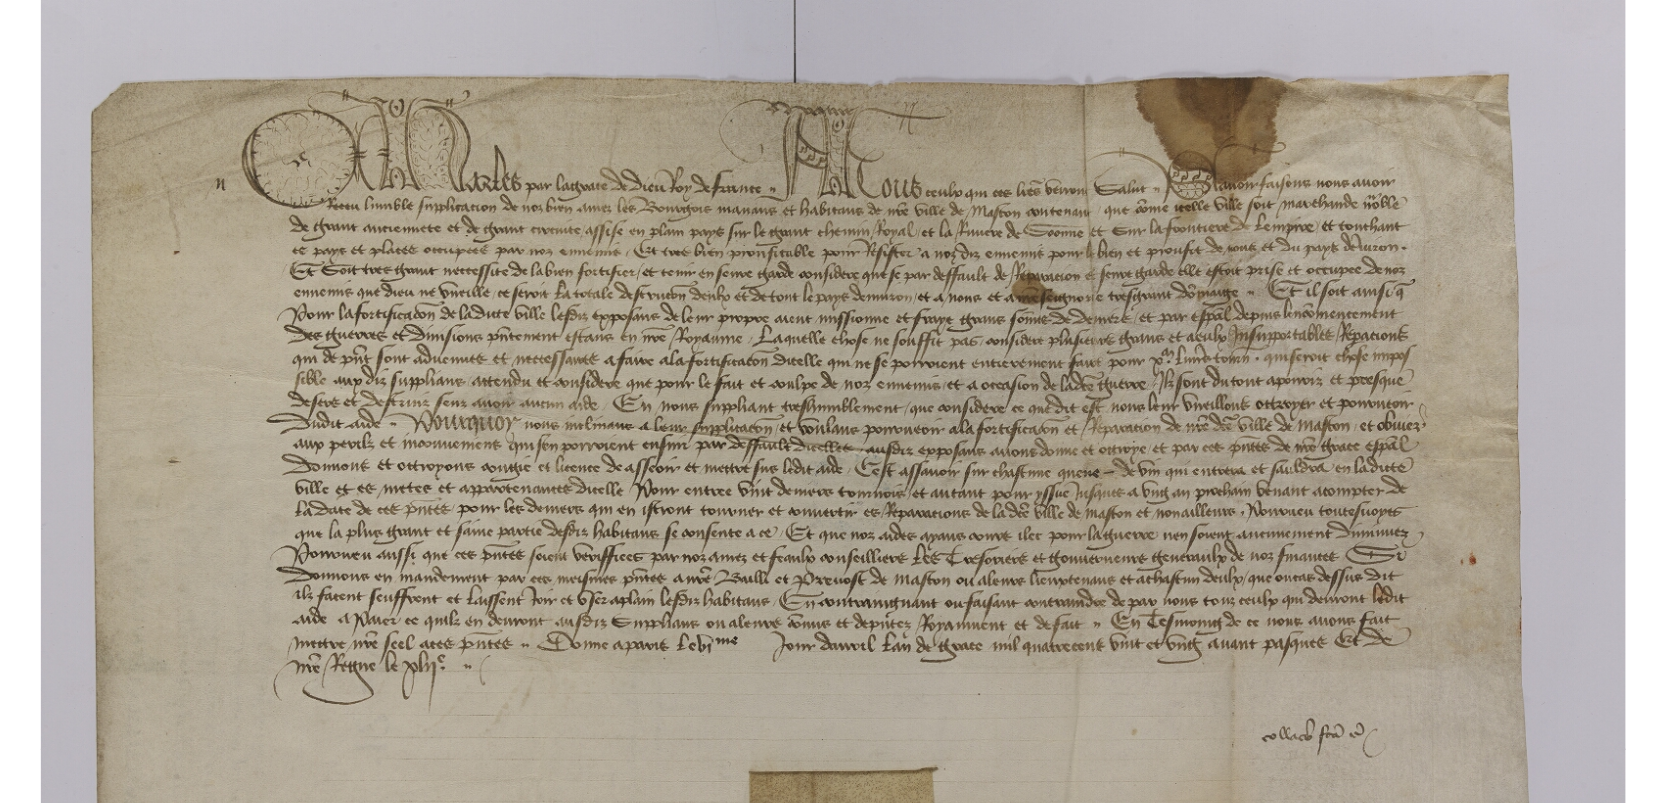 Charles par la grace de Dieu Roy de france A Tous ceulx qui ces lrēs verront Salut Savoir faisons nous avoir
Receu lumble supplicacion de noz bien amez les Bourgois manans et habitans de nrē ville de Mascon contenant que cōme icelle ville soit marchande noble
de grant anciennete et de grant circuite assise en plain pays sur le grant chemin Royal et la Riviere de Soonne et sur la frontiere de lempire et touchant
ce pays et places occupees par noz ennemis Et tres bien prouffitable pour Resister a noz diz ennemis pour le bien et prouffit de nous et du pays denviron
Et Soit tres grant neccessite de la bien fortifier et tenir en seure garde considere que se par deffault de Reparacion et seure garde elle estoit prise et occupee de noz
ennemis que dieu ne vueille ce seroit la totale destruccōn deulx et de tout le pays denviron et a nous et a nrē seignorie tresgrant dōmaige Et il soit ainsi q̄
Pour la fortificacōn de ladicte ville lesdiz exposans de leur propre aient missionne et fraye grans sōmes de deniers et par espāl depuis lencōmencement
des guerres et divisions pn̄tement estans en nrē Royaume Laquelle chose ne souffit pas considere plusieurs grans et a eulx Insupportables Repacions
qui de pn̄t sont advenues et neccessaires a faire a la fortificacōn dicelle qui ne se porroient entierement faire pour xm livres tourn. qui seroit chose impos
sible aux diz supplians attendu et considere que pour le fait et coulpe de noz ennemis et a occasion de ladcē guerre Ilz sont du tout apouriz et presque
desers et destruiz senz avoir aucun aide En nous suppliant treshumblement que considere ce que dit est nous leur vueillons ottroyer et pourveoir
dudit aide Pourquoy nous inclinans a leur supplicacōn et voulans pourveoir a la fortificacōn et Reparacion de nrē dcē ville de Mascon et obvier
aux perilz et inconveniens qui sen porroient ensuir par deffault dicelles ausdiz exposans avons donne et ottroye et par ces pn̄tes de nrē grace espāl
donnons et ottroyons congie et licence de asseoir et mettre sus ledit aide Cest assavoir sur chascune queue de vin qui entrera et sauldra en ladicte
ville et es metes et appartenances dicelle Pour entree vint deniers tournois et autant pour yssue Jusques a ung an prochain venant acompter de
la date de ces pn̄tes pour les deniers qui en istront tourner et convertir es Reparacions de la dcē ville de Mascon et non ailleurs Pourveu toutesvoyes
que la plus grant et saine partie desdiz habitans se consente a ce Et que noz aides ayans cours ilec pour la guerre nen soient aucunement diminuez
Pourveu aussi que ces pn̄tes soient veriffiees par noz amez et feaulx conseilliers les Tresoriers et gouverneurs generaulx de noz finances Si
donnons en mandement par ces meismes pn̄tes a nrē Bailli et Prevost de Mascon ou a leurs lieuxtenans et a chascun deulx que ou cas dessus dit
ilz facent seuffrent et laissent Joir et user a plain lesdiz habitans En contraingnant ou faisant contraindre de par nous touz ceulx qui devront ledit
aide a Paier ce quilz en devront ausdiz Supplians ou a leurs cōmis et deputez Royaument et de fait En Tesmoing de ce nous avons fait
mettre nrē seel a ces pn̄tes Donne a paris le vime Jour davril Lan de grace mil quatrecens vint et ung avant pasques Et de
nrē Regne le xlijᵉ
collacō fcā ē